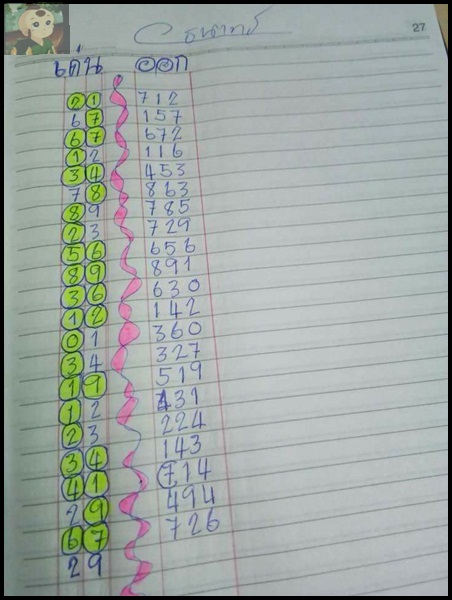 27
เด่น ออก
21 712
67 157
67 672
12 116
34 453
78 863
89 785
23 729
56 656
89 891
36 630
12 142
01 360
34 327
19 519
12 431
23 224
34 143
41 714
29 494
67 726
29